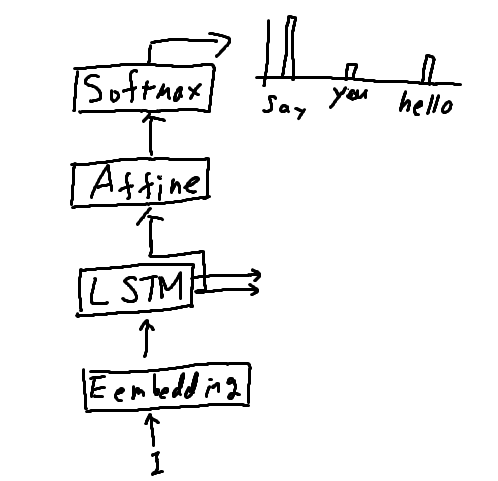 Softmax
say you hello
Affine
LSTM
Eembedding
I